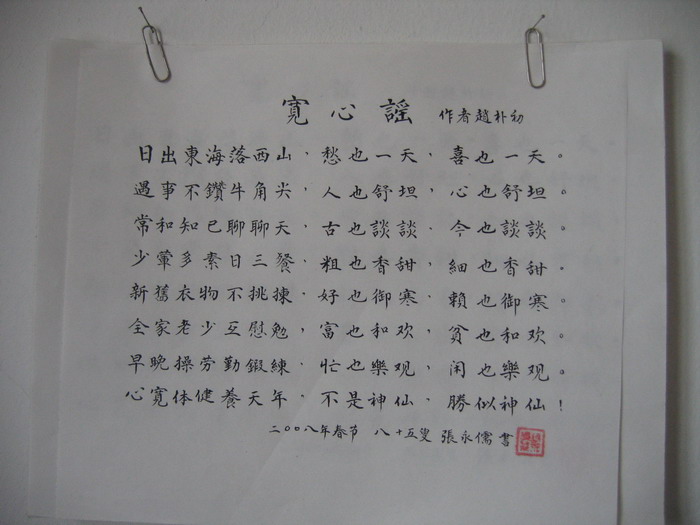 寬心謠 作者趙朴初
日出東海落西山，愁也一天，喜也一天。
遇事不鑽牛角尖，人也舒坦，心也舒坦。
常和知己聊聊天，古也談談，今也談談。
少葷多素日三餐，粗也香甜，細也香甜。
新舊衣物不挑揀，好也御寒，賴也御寒。
全家老少互慰勉，富也和欢，貧也和欢。
早晚操劳勤鍛練，忙也樂观，闲也樂观。
心寬体健養天年，不是神仙，勝似神仙！
二〇〇八年春节 八十五叟 張永儒書